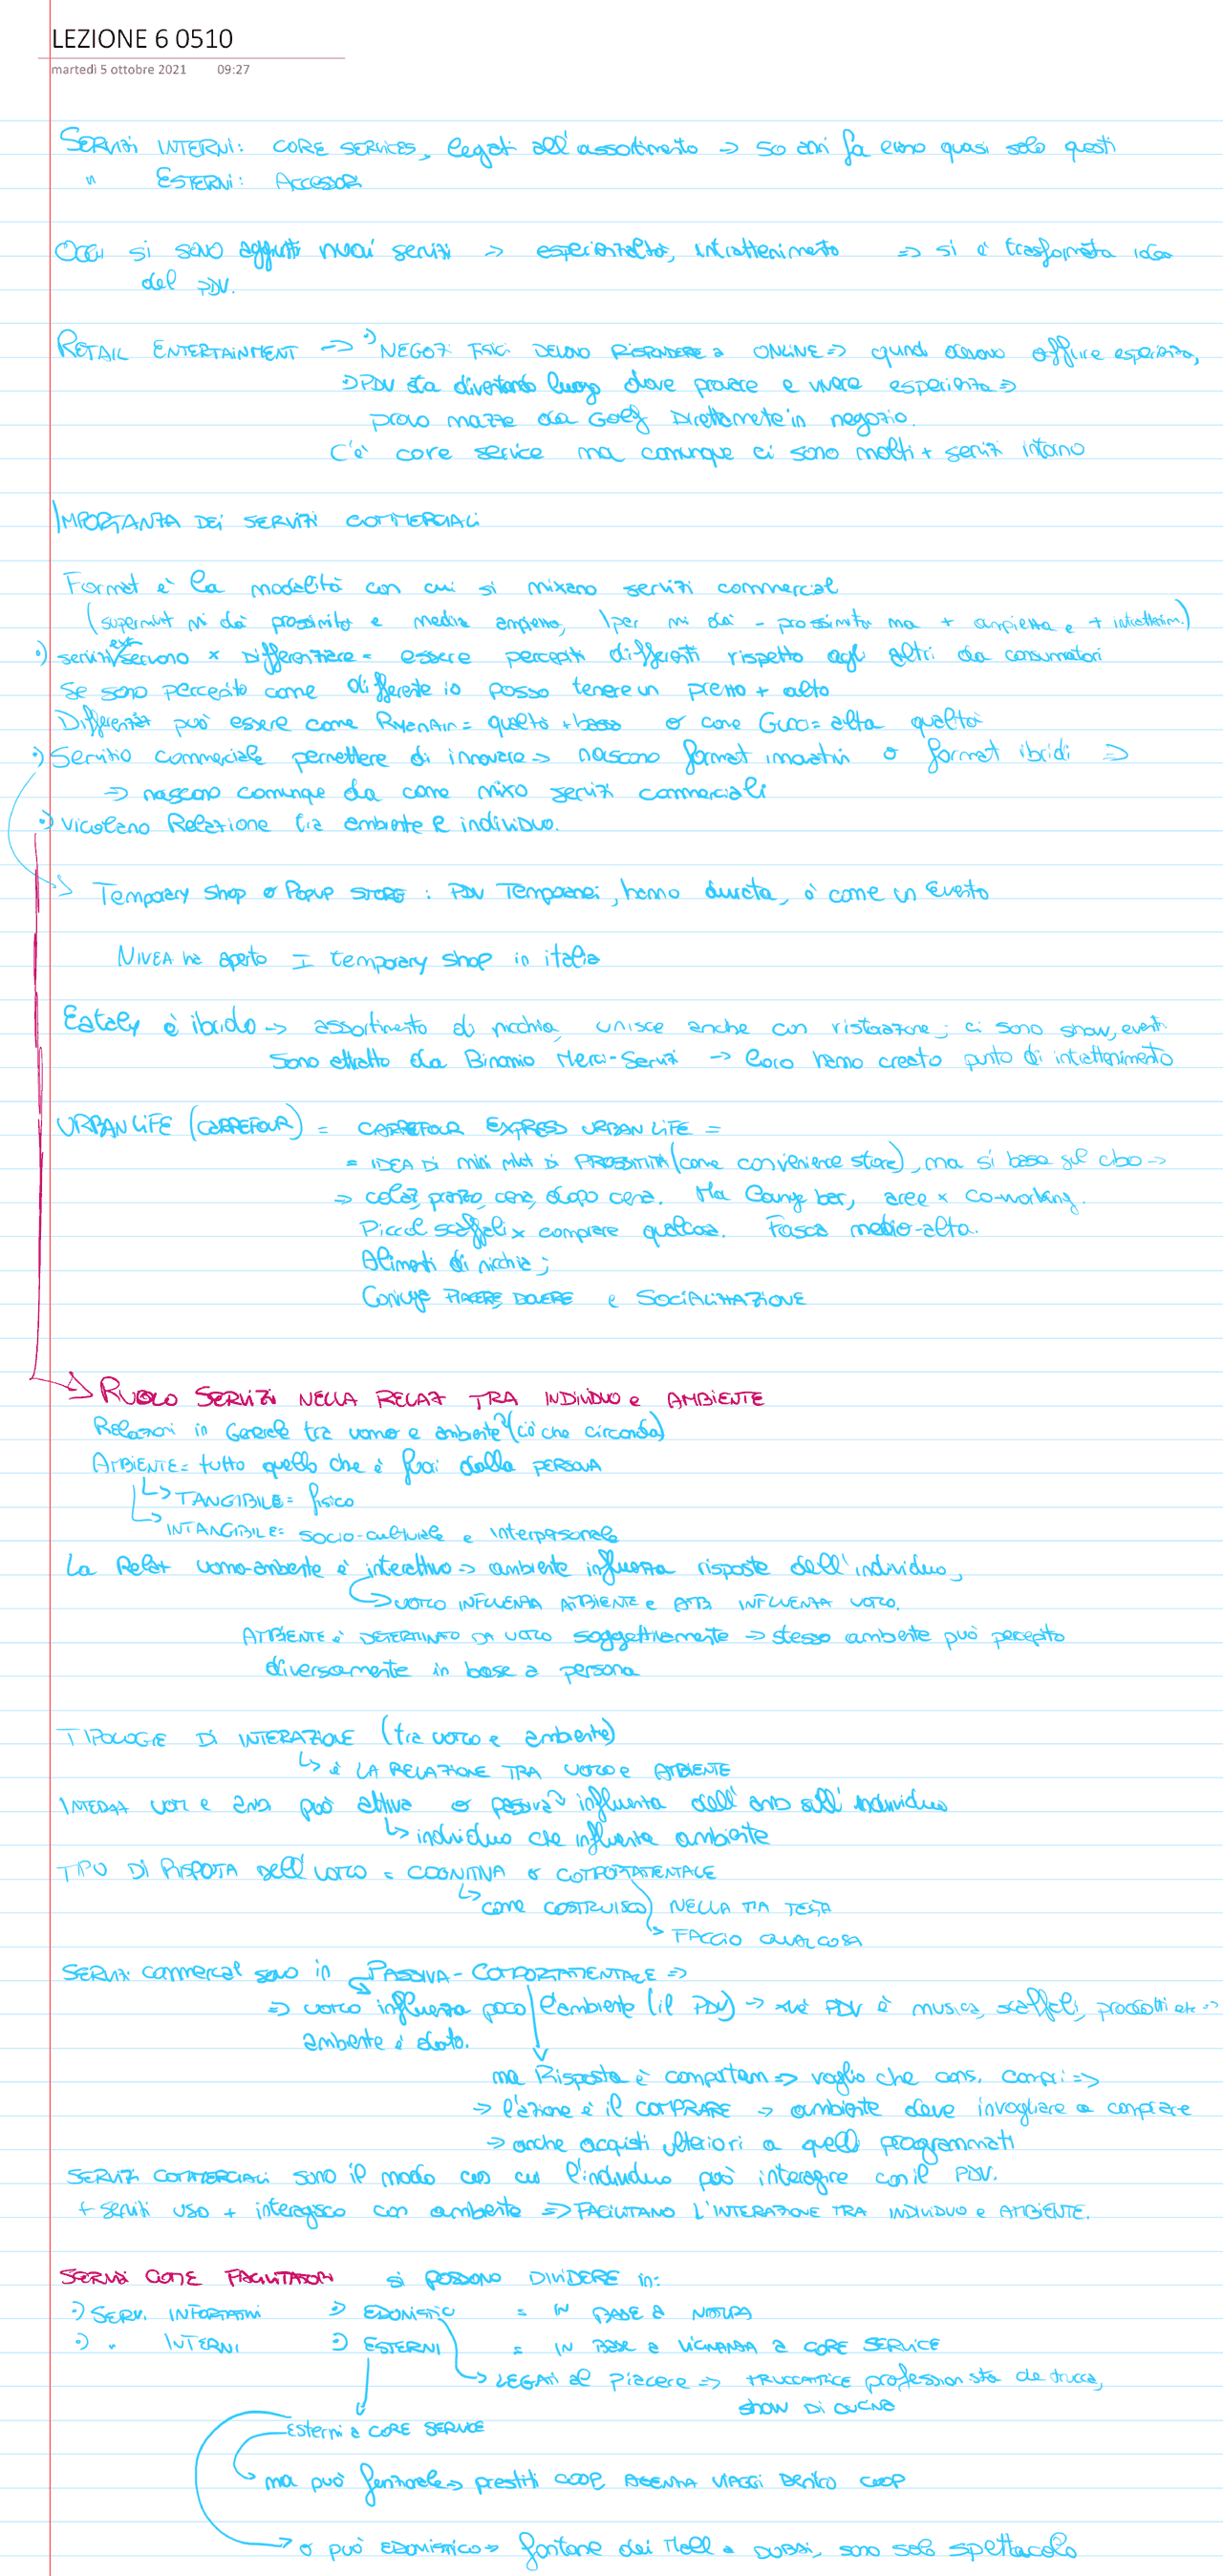 LEZIONE 6 0510
martedì 5 ottobre 2021 09:27
SERVIZI INTERNI: CORE SERVICES, legati all'assortimento => 50 anni fa erano quasi solo questi
" ESTERNI: ACCESSORI
OGGI si sono aggiunti nuovi servizi => esperienzialità, intrattenimento => si è trasformata idea
del PDV.
RETAIL ENTERTAINMENT => •) NEGOZI FISICI DEVONO RISPONDERE a ONLINE => quindi devono offrire esperienza,
•) PDV sta diventando luogo dove provare e vivere esperienza =>
provo mazze da Golf Direttamente in negozio.
C'è core service ma comunque ci sono molti + servizi intorno
IMPORTANZA DEI SERVIZI COMMERCIALI
Format è la modalità con cui si mixano servizi commerciali
(supermkt mi dà prossimità e media ampiezza, Iper mi dà - prossimità ma + ampiezza e + intrattenim.)
•) servizi servono x Differenziare = essere percepiti differenti rispetto agli altri da consumatori
Se sono percepito come differente io posso tenere un prezzo + alto
Differenziaz può essere come RyanAir = qualità + bassa o come Gucci = alta qualità
•) Servizio commerciale permettere di innovare => nascono format innovativi o format ibridi =>
=> nascono comunque da come mixo servizi commerciali
•) Vicolano Relazione tra ambiente e individuo.
Temporary Shop o Popup STORE: PDV Temporanei, hanno durata, è come un Evento
NIVEA ha aperto I temporary shop in italia
Eataly è ibrido -> assortimento di nicchia, unisce anche con ristorazione; ci sono show, eventi
Sono attratto da Binomio Merci-Servizi -> loro hanno creato punto di intrattenimento
URBAN LIFE (CARREFOUR) = CARREFOUR EXPRESS URBAN LIFE =
= IDEA DI mini mkt di PROSSIMITÀ (come convenience store), ma si basa sul cibo ->
=> colaz, pranzo, cena, dopo cena. Ha Lounge bar, aree x co-working.
Piccoli scaffali x comprare qualcosa. Fascia medio-alta.
Alimenti di nicchia;
Coniuga PIACERE, DOVERE e SOCIALIZZAZIONE
RUOLO SERVIZI NELLA RELAZ TRA INDIVIDUO e AMBIENTE
Relazioni in Generale tra uomo e ambiente (ciò che circonda)
AMBIENTE = tutto quello che è fuori dalla PERSONA
TANGIBILE = fisico
INTANGIBILE = socio-culturale e interpersonale
La Relaz uomo-ambiente è interattivo => ambiente influenza risposte dell'individuo,
UOMO INFLUENZA AMBIENTE e AMB INFLUENZA UOMO.
AMBIENTE è DETERMINATO DA UOMO soggettivamente => stesso ambiente può percepito
diversamente in base a persona
TIPOLOGIE DI INTERAZIONE (tra uomo e ambiente)
è LA RELAZIONE TRA UOMO e AMBIENTE
INTERAZ UOM e AMB può attiva o passiva influenza dell'amb sull'individuo
individuo che influenza ambiente
TIPO DI RISPOSTA dell'UOMO = COGNITIVA o COMPORTAMENTALE
come COSTRUISCO NELLA MIA TESTA
FACCIO QUALCOSA
SERVIZI commerciali sono in PASSIVA-COMPORTAMENTALE =>
=> uomo influenza poco l'ambiente (il PDV) -> xké PDV è musica, scaffali, prodotti etc =>
ambiente è dato.
ma Risposta è comportam => voglio che cons. compri =>
=> l'azione è il COMPRARE => ambiente deve invogliare a comprare
=> anche acquisti ulteriori a quelli programmati
SERVIZI COMMERCIALI sono il modo con cui l'individuo può interagire con il PDV.
+ servizi uso + interagisco con ambiente => FACILITANO L'INTERAZIONE TRA INDIVIDUO e AMBIENTE.
SERVIZI COME FACILITATORI si possono DIVIDERE in:
•) SERV. INFORMATIVI •) EDONISTICI = IN BASE a NATURA
•) " INTERNI •) ESTERNI = IN BASE a VICINANZA a CORE SERVICE
LEGATI al piacere => TRUCCATRICE professionista che trucca,
SHOW DI CUCINA
Esterni a CORE SERVICE
ma può funzionale => prestiti COOP, AGENZIA VIAGGI DENTRO COOP
o può EDONISTICO => fontane dei Mall a DUBAI, sono solo spettacolo